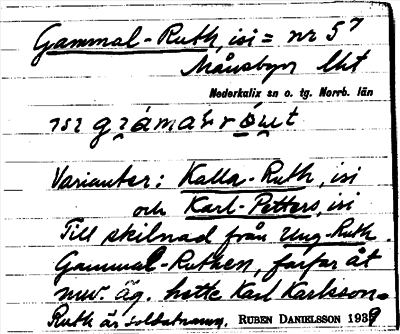 Gammal-Ruth, isi = nr 57
Månsbyn lht
Nederkalix sn o. tg. Norrb. län
Varianter: Kalla-Ruth, isi
och Karl-Petters, isi
Till skilnad från Ung-Ruth.
Gammal-Ruthen, farfar åt
nuv. äg. hette Karl Karlsson.
Ruth är soldatnamn. RUBEN DANIELSSON 1939